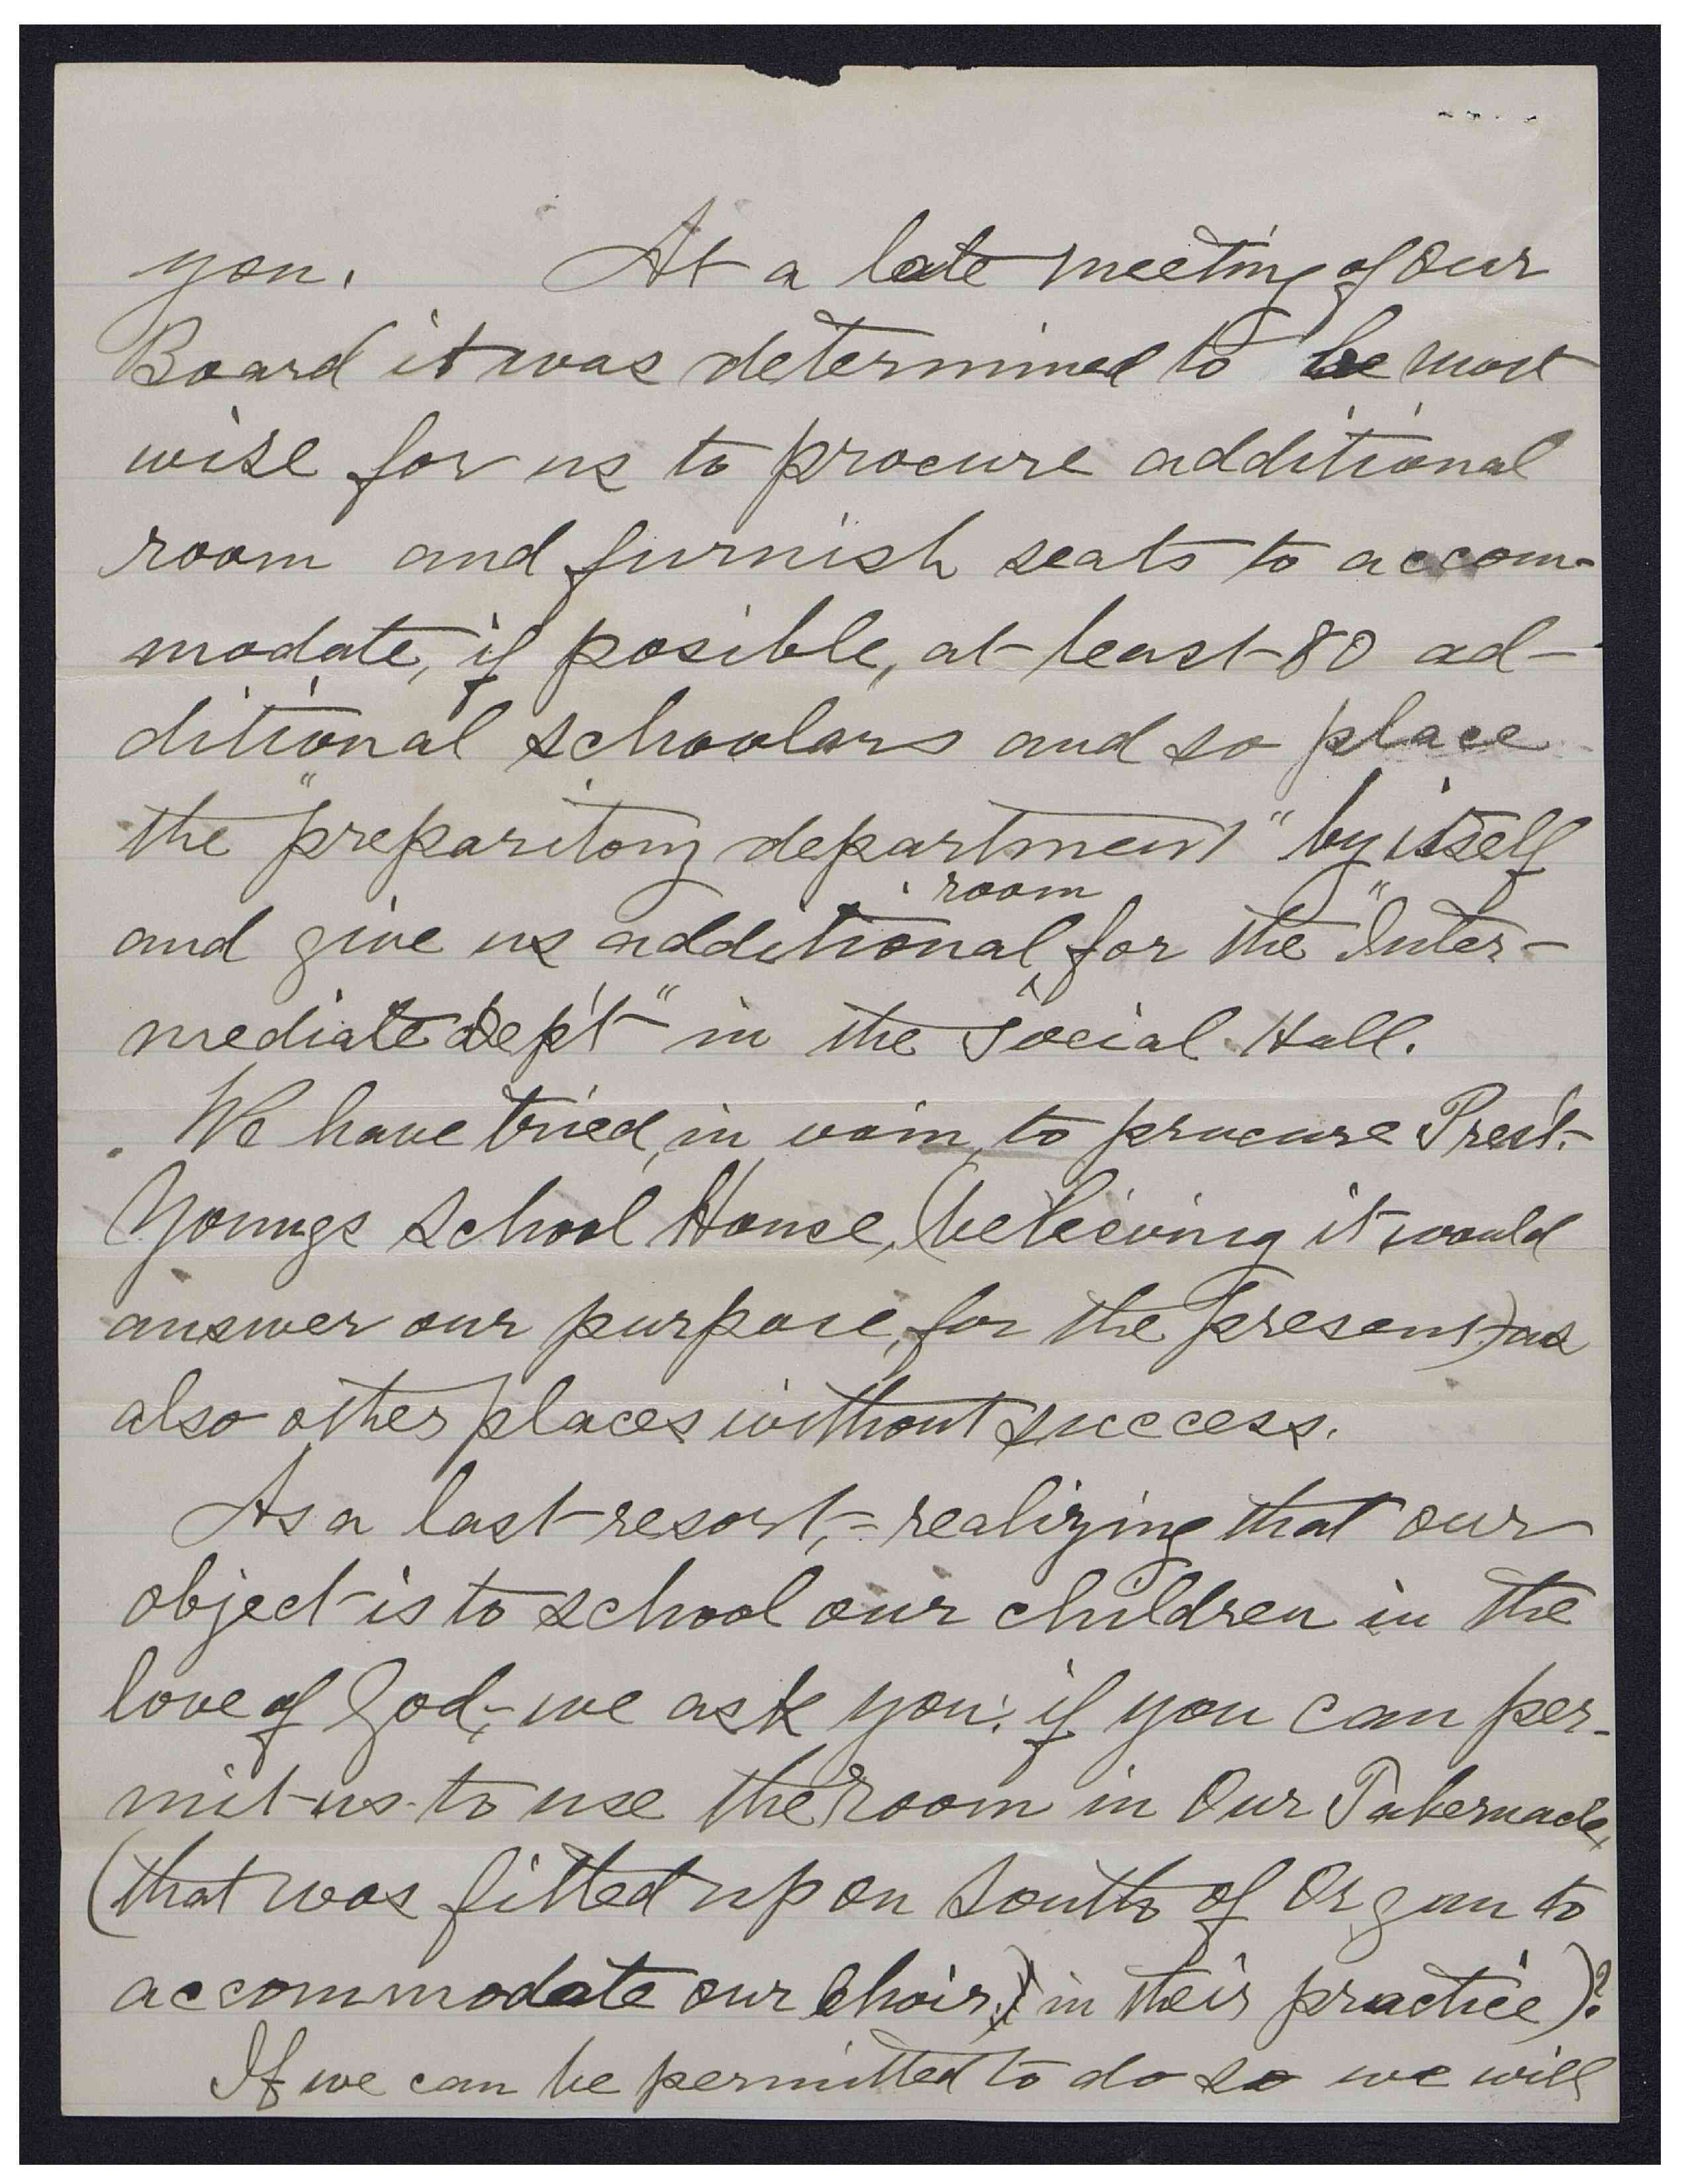 you. At a late meeting of our
Board it was determined to be most
wise for us to procure additional
room and furnish seats to accom-
modate, if posible, at least 80 ad-
ditional schoolars and so place
the "preparitory department" by itself
room
and give us additional ^ for the "Inter-
mediate Dep't" in the Social Hall.
We have tried, in vain, to procure Prest.
Youngs School House, (believing it would
answer our purpose, for the present) as
also other places without success.
As a last resort, - realizing that our
object is to school our children in the
love of God, - we ask you: if you can per-
mit us to use the room in Our Tabernacle,
(that was fitted up on South of Organ to
accommodate our Choir, in their practice)?
If we can be permitted to do so we will